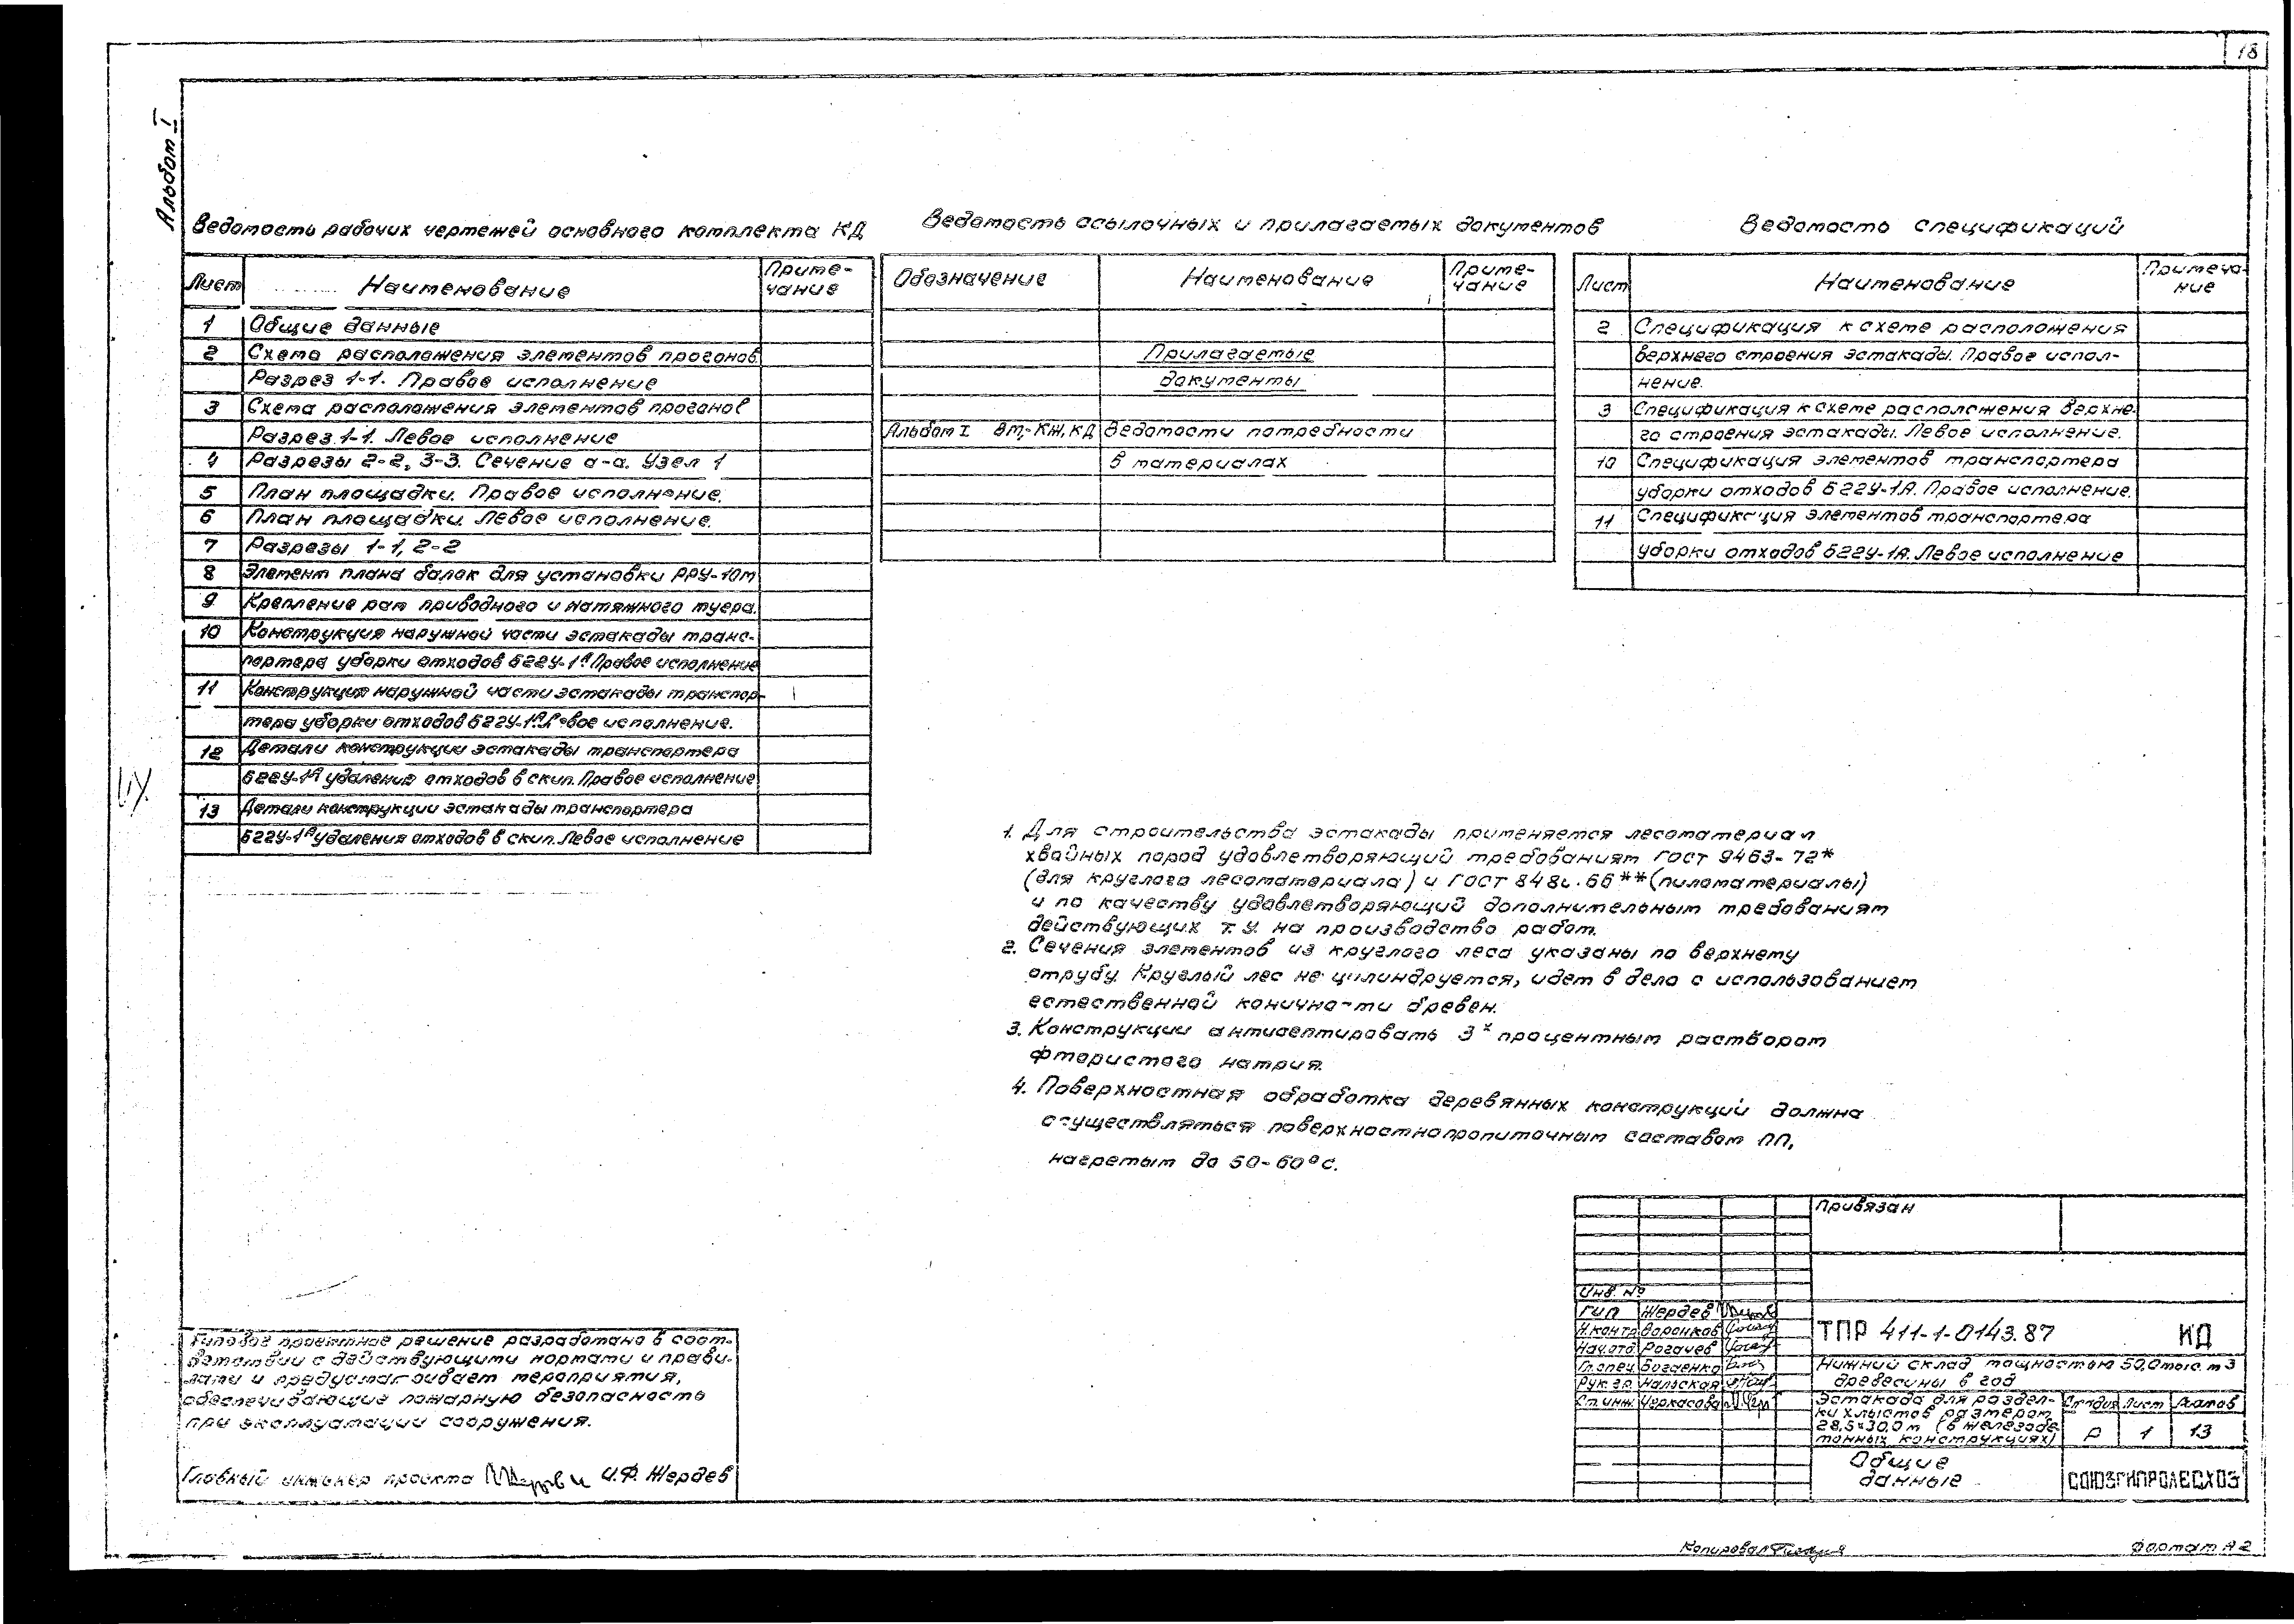 18
Альбом I
Ведомость рабочих чертежей основного комплекта КД
Лист
Наименование
Приме-
чание
1 Общие данные
2 Схема расположения элементов прогонов
Разрез 1-1. Правое исполнение
3 Схема расположения элементов прогонов
Разрез 1-1. Левое исполнение
4 Разрезы 2-2, 3-3. Сечение а-а. Узел 1
5 План площадки. Правое исполнение.
6 План площадки. Левое исполнение.
7 Разрезы 1-1, 2-2
8 Элемент плана балок для установки РРУ-10м
9 Крепление рам приводного и натяжного туера.
10 Конструкция наружной части эстакады транс-
портера уборки отходов Б22У-1А Правое исполнение
11 Конструкция наружной части эстакады транспор-
тера уборки отходов Б22У-1А Левое исполнение.
12 Детали конструкции эстакады транспортера
Б22У-1А удаления отходов в скип. Правое исполнение
13 Детали конструкции эстакады транспортера
Б22У-1А удаления отходов в скип. Левое исполнение
Ведомость ссылочных и прилагаемых документов
Обозначение
Наименование
Приме-
чание
Прилагаемые
документы
Альбом I ВМ,-КЖ, КД Ведомости потребности
в материалах
Ведомость спецификаций
Лист
Наименование
Примеча-
ние
2 Спецификация к схеме расположения
верхнего строения эстакады. Правое испол-
нение.
3 Спецификация к схеме расположения верхне-
го строения эстакады. Левое исполнение.
10 Спецификация элементов транспортера
уборки отходов Б22У-1А. Правое исполнение.
11 Спецификация элементов транспортера
уборки отходов Б22У-1А. Левое исполнение
1. Для строительства эстакады применяется лесоматериал
хвойных пород удовлетворяющий требованиям ГОСТ 9463-72*
(для круглого лесоматериала) и ГОСТ 66** (пиломатериалы)
и по качеству удовлетворяющий дополнительным требованиям
действующих т.у. на производство работ.
2. Сечения элементов из круглого леса указаны по верхнему
отрубу. Круглый лес не цилиндруется, идет в дело с использованием
естественной конично-ти бревен.
3. Конструкции антисептировать 3х процентным раствором
фтористого натрия.
4. Поверхностная обработка деревянных конструкций должна
осуществляться поверхностнопропиточным составом ПП,
нагретым до 50-60°С.
Типовое проектное решение разработано в соот-
ветствии с действующими нормами и прави-
лами и предусматривает мероприятия,
обеспечивающие пожарную безопасность
при эксплуатации сооружения.
Главный инженер проекта И.Ф. Жердев
Привязан
Инв. №
ГИП Жердев
Н.контр Воронков
Нач.отд Рогачев
Гл.спец. Богаенко
Рук.гр. Нальская
Ст.инж. Черкасова
ТПР 411-1-0143.87 КД
Нижний склад мощностью 50,0 тыс. м3
древесины в год
Эстакада для раздел-
ки хлыстов размером
28,5×30,0 м (в железобе-
тонных конструкциях)
Стадия Лист Листов
Р 1 13
Общие
данные
СОЮЗГИПРОЛЕСХОЗ
Копировал
Формат А2